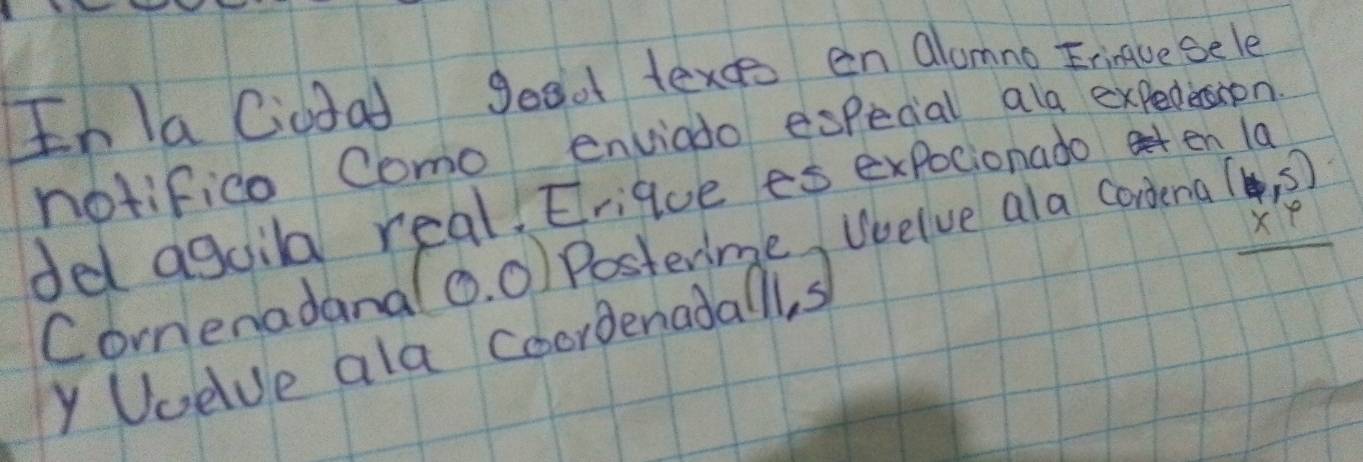 En la Ciudad geoot texto en alumno Erique se le
notifico como enviado especial ala expedecion.
del aguila real. Erique es expocionado en la
Cornenadana (0.0) Posterime Vuelve ala Cordena (4,5)
x y
y Vuelve ala coordenada (11,5)